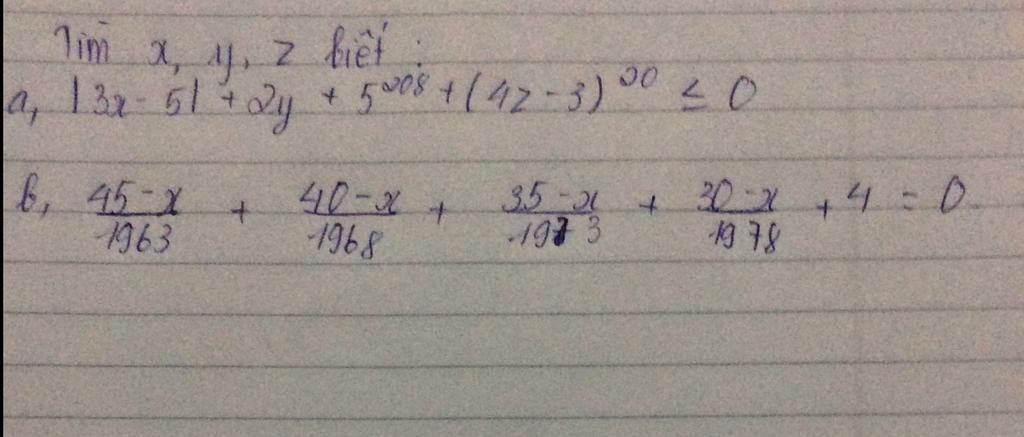 Tìm x, y, z biết :
a, |3x - 5| + 2y + 5²⁰⁸ + (4z - 3)²⁰ ≤ 0
b, (45-x)/1963 + (40-x)/1968 + (35-x)/1973 + (30-x)/1978 + 4 = 0